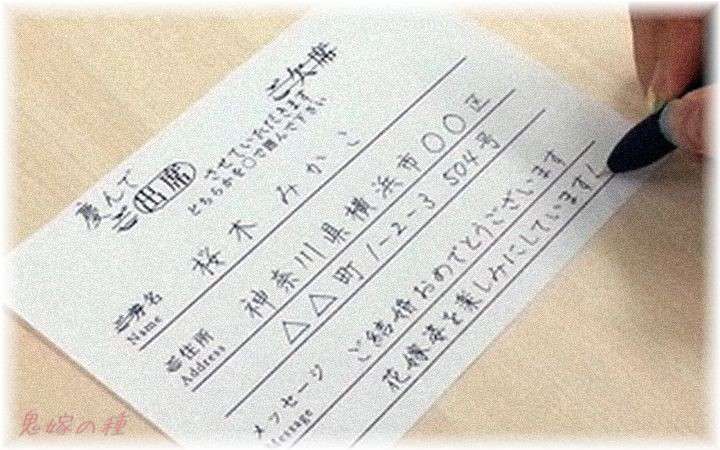 ご欠席
慶んで
ご出席
させていただきます
どちらかを○で囲んで下さい
ご芳名
Name
桜木みかこ
ご住所
Address
神奈川県横浜市〇〇区
△△町1-2-3 504号
メッセージ
Message
ご結婚おめでとうございます
花嫁姿を楽しみにしていますし
鬼嫁の種